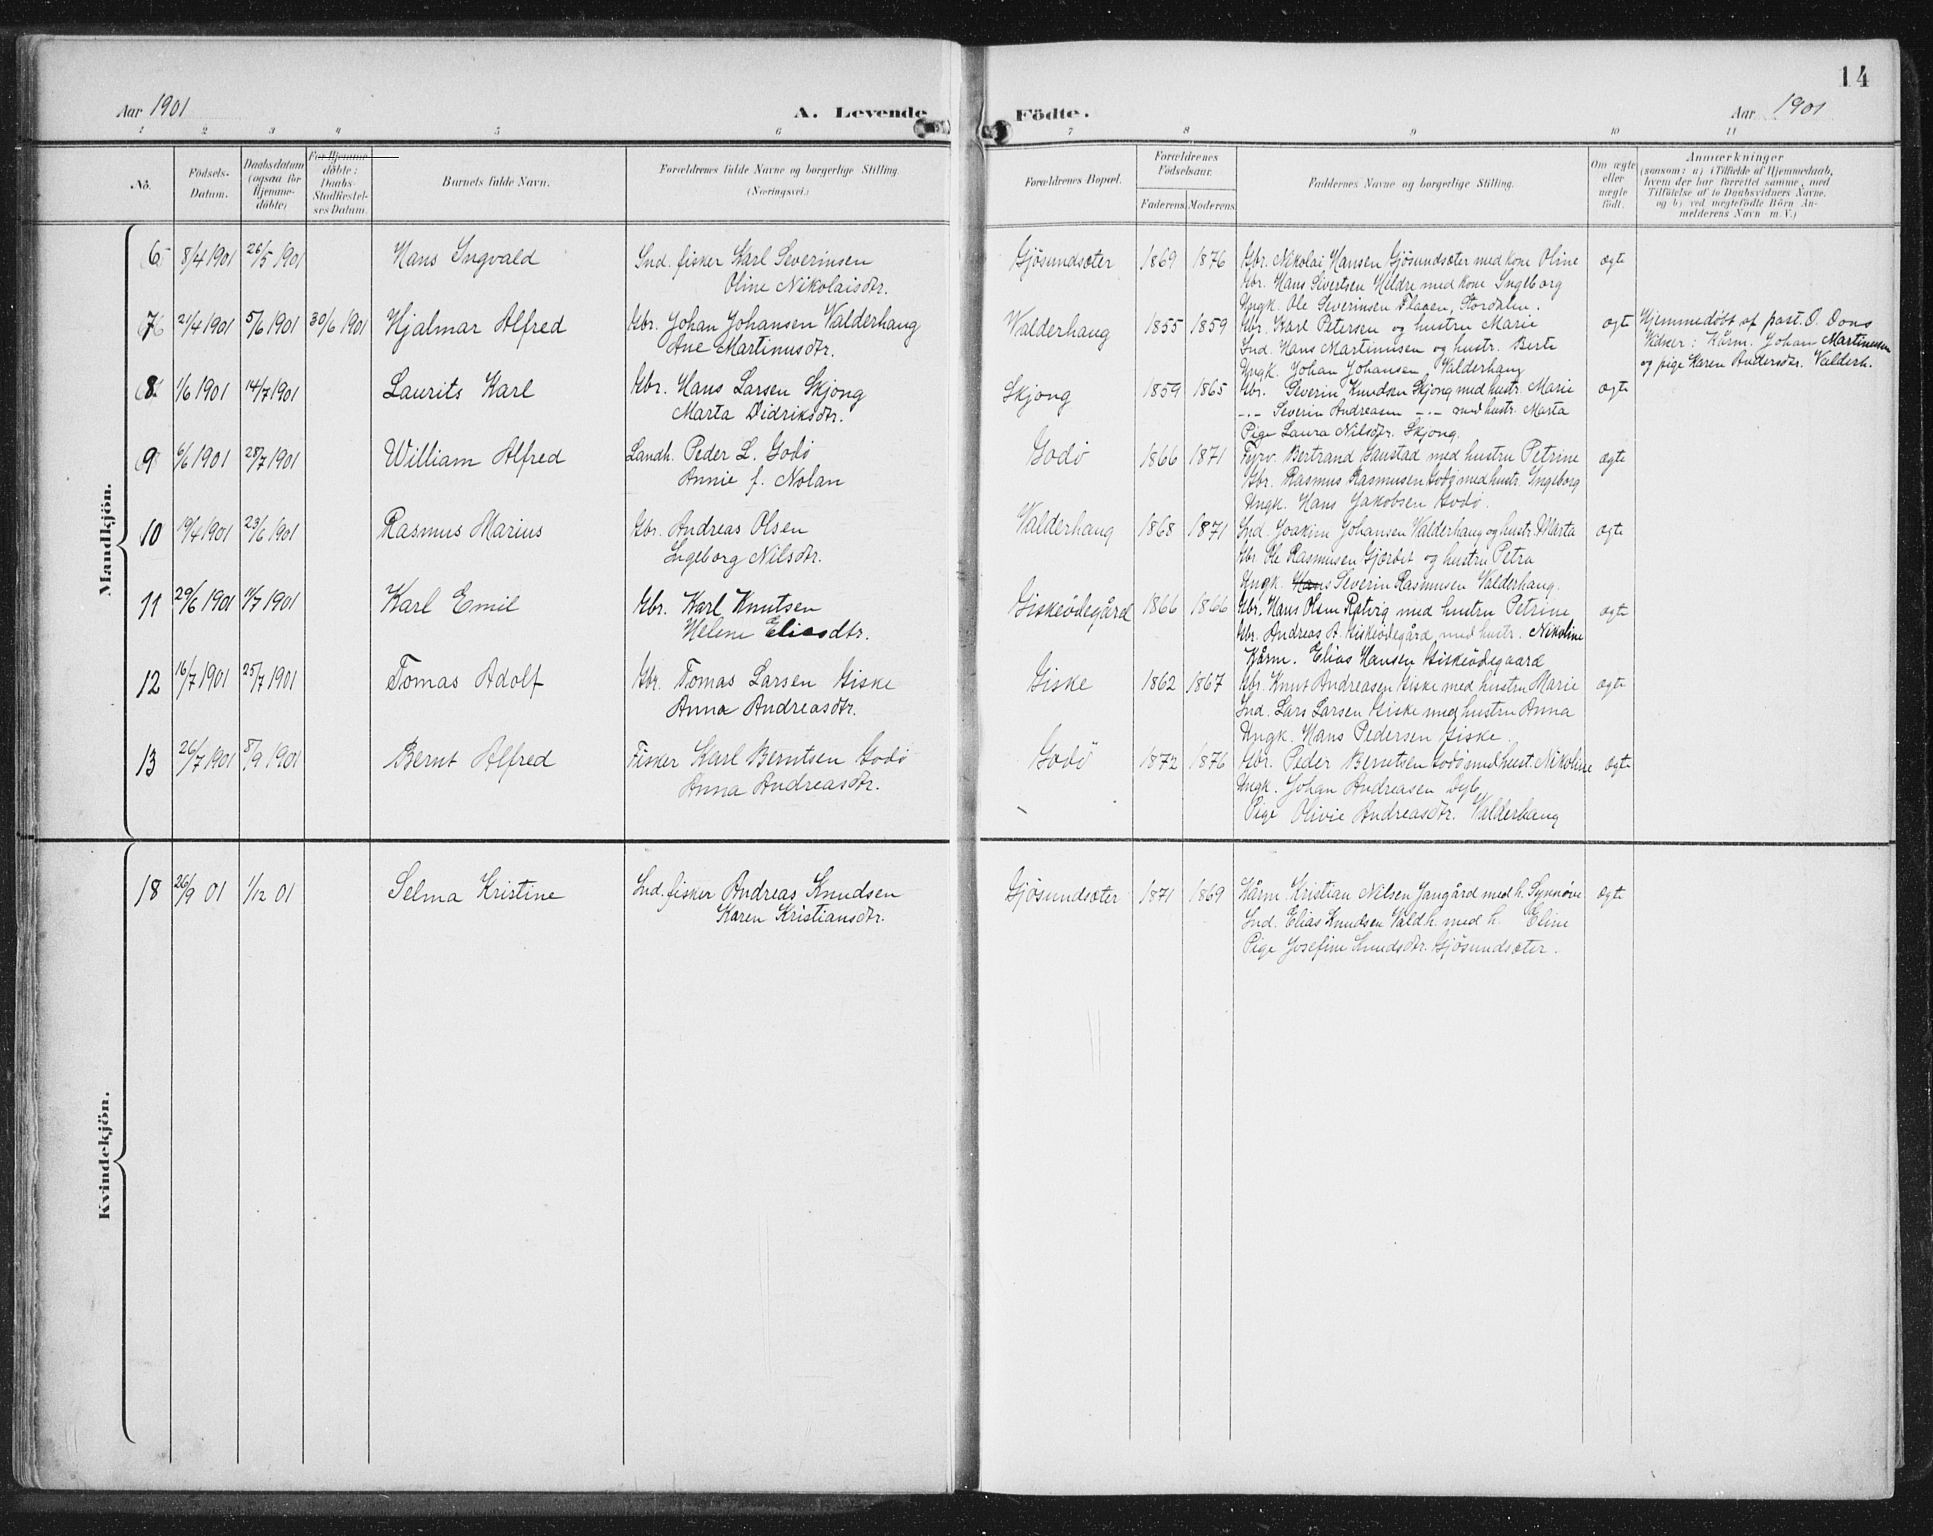 14
Aar 1901
A. Levende
Födte.
Aar 1901
1 2 3 4 5 6 7 8 9 10 11
No.
Födsels-
Datum.
Daabsdatum
(ogsaa for
Hjemme-
döbte)
For Hjemme-
döbte:
Daabs-
Stadfæstel-
ses Datum.
Barnets fulde Navn.
Forældrenes fulde Navne og borgerlige Stilling.
(Næringsvei.)
Forældrenes Bopæl.
Forældrenes
Födselsaar.
Faderens Moderens
Faddernes Navne og borgerlige Stilling.
Om ægte
eller
uægte
födt.
Anmærkninger
(saasom: a) i Tilfælde af Hjemmedaab,
hvem der har forrettet samme, med
Tilföielse af to Daabsvidners Navne,
og b) ved uægtefödte Börn An-
melderens Navn m. V.)
Mandkjön.
6 8/4 1901 26/5 1901 Hans Ingvald Ind. fisker Karl Severinsen Gjösundsæter 1869 1876 Gbr. Nikolai Hansen Gjösundsæter med kone Oline ægte
Oline Nikolaisdtr. Gbr. Hans Sivertsen Hildre med kone Ingeborg
Ungk. Ole Severinsen Flaaen, Stordalen.
7 21/4 1901 5/6 1901 30/6 1901 Hjalmar Alfred Gbr. Johan Johansen Valderhaug Valderhaug 1855 1859 Gbr. Karl Petersen og hustru Marie ægte Hjemmedøbt af past. O. Dons
Ane Martinusdtr. Ind. Hans Martinusen og hustr. Berte Vidner: Kårm. Johan Martinusen
Ungk. Johan Johansen Valderhaug og pige Karen Andersdtr. Valderh.
8 1/6 1901 14/7 1901 Laurits Karl Gbr. Hans Larsen Skjong Skjong 1859 1865 Gbr. Severin Knudsen Skjong med hustr. Marie ægte
Marta Didriksdtr. -"- Severin Andreasen -"- med hustr. Marta
Pige Laura Nilsdtr. Skjong.
9 6/6 1901 28/7 1901 William Alfred Landh. Peder L. Godø Godø 1866 1871 Fyrv. Bertrand Saustad med hustru Petrine ægte
Annie f. Nolan Gbr. Rasmus Rasmusen Godø med hustr. Ingeborg
Ungk. Hans Jakobsen Godø.
10 19/4 1901 23/6 1901 Rasmus Marius Gbr. Andreas Olsen Valderhaug 1868 1871 Ind. Joakim Johansen Valderhaug og hustr. Marta ægte
Ingeborg Nilsdtr. Gbr. Ole Rasmusen Gjærbet og hustru Petra
Ungk. Hans Severin Rasmusen Valderhaug.
11 29/6 1901 11/7 1901 Karl Emil Gbr. Karl Knutsen Giskeödegård 1866 1866 Gbr. Hans Olsen Rotvig med hustru Petrine ægte
Helene Eliasdtr. Gbr. Andreas A. Giskeödegård med hustr. Nikoline
Kårm. Elias Hansen Giskeödegaard
12 16/7 1901 25/7 1901 Tomas Adolf Gbr. Tomas Larsen Giske Giske 1862 1867 Gbr. Knut Andreasen Giske med hustru Marie ægte
Anna Andreasdtr. Ind. Lars Larsen Giske med hustru Anna
Ungk. Hans Pedersen Giske.
13 26/7 1901 8/9 1901 Bernt Alfred Fisker Karl Berntsen Godø Godø 1872 1876 Gbr. Peder Berntsen Godø med hust. Nikoline ægte
Anna Andreasdtr. Ungk. Johan Andreasen Dyb
Pige Olivie Andreasdtr. Valderhaug
Kvindekjön.
18 26/9 01 1/12 01 Selma Kristine Ind. fisker Andreas Knudsen Gjösundsæter 1871 1869 Kårm. Kristian Nilsen Jangård med h. Synnøve ægte
Karen Kristiansdtr. Ind. Elias Knudsen Valdh. med h. Eline
Pige Josefine Knudsdtr. Gjösundsæter.